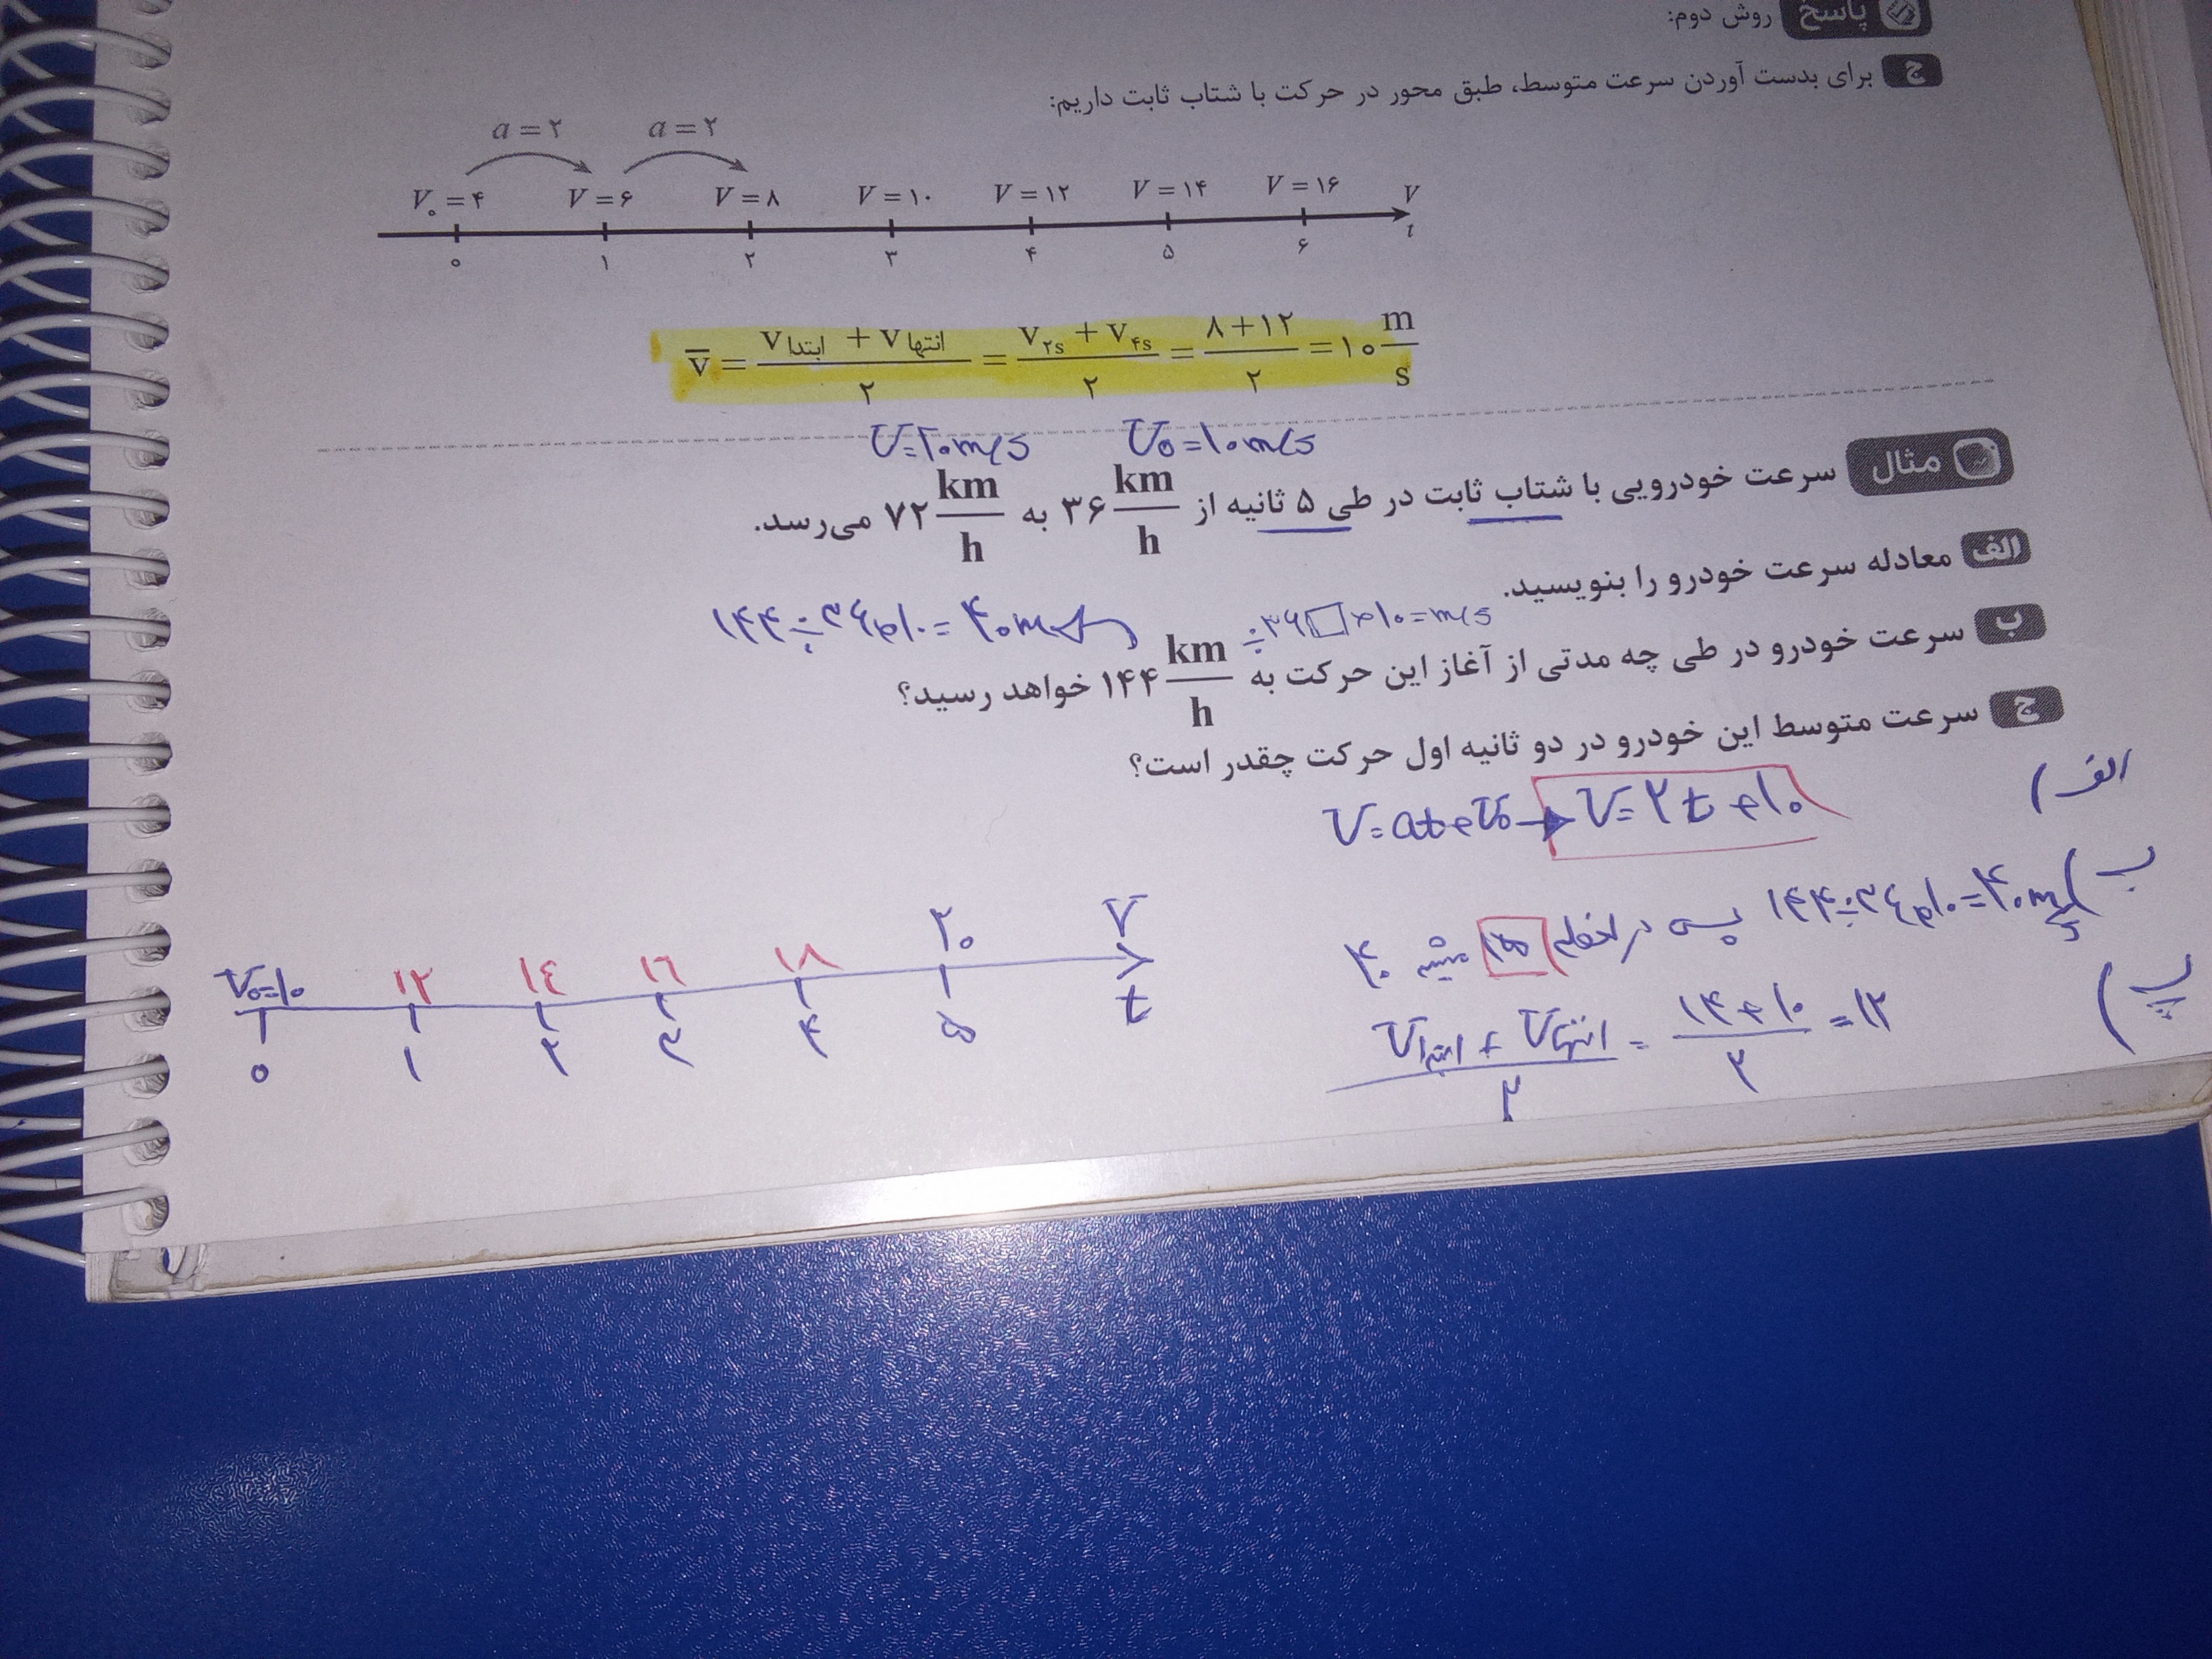 پاسخ روش دوم:
ج برای بدست آوردن سرعت متوسط، طبق محور در حرکت با شتاب ثابت داریم:
a = ۲ a = ۲
V₀ = ۴ V = ۶ V = ۸ V = ۱۰ V = ۱۲ V = ۱۴ V = ۱۶ V
۰ ۱ ۲ ۳ ۴ ۵ ۶ t
v̄ = (v ابتدا + v انتها)/۲ = (v۲s + v۴s)/۲ = (۸+۱۲)/۲ = ۱۰ m/s
V=۲۰m/s V₀=۱۰m/s
مثال سرعت خودرویی با شتاب ثابت در طی ۵ ثانیه از ۳۶ km/h به ۷۲ km/h می‌رسد.
الف معادله سرعت خودرو را بنویسید.
۱۴۴÷۳٤×۱۰=۴۰m/s ÷۳۶□×۱۰=m/s
ب سرعت خودرو در طی چه مدتی از آغاز این حرکت به ۱۴۴ km/h خواهد رسید؟
ج سرعت متوسط این خودرو در دو ثانیه اول حرکت چقدر است؟
الف) V=at+V₀ → V=۲t+۱۰
ب) ۱۴۴÷۳٤×۱۰=۴۰m/s پس در لحظه ۱۵ میشه ۴۰
پ) (V ابتدا + V انتها)/۲ = (۱۴+۱۰)/۲ =۱۲
V₀=۱۰ ۱۲ ۱٤ ۱٦ ۱۸ ۲۰ V
۰ ۱ ۲ ۳ ۴ ۵ t